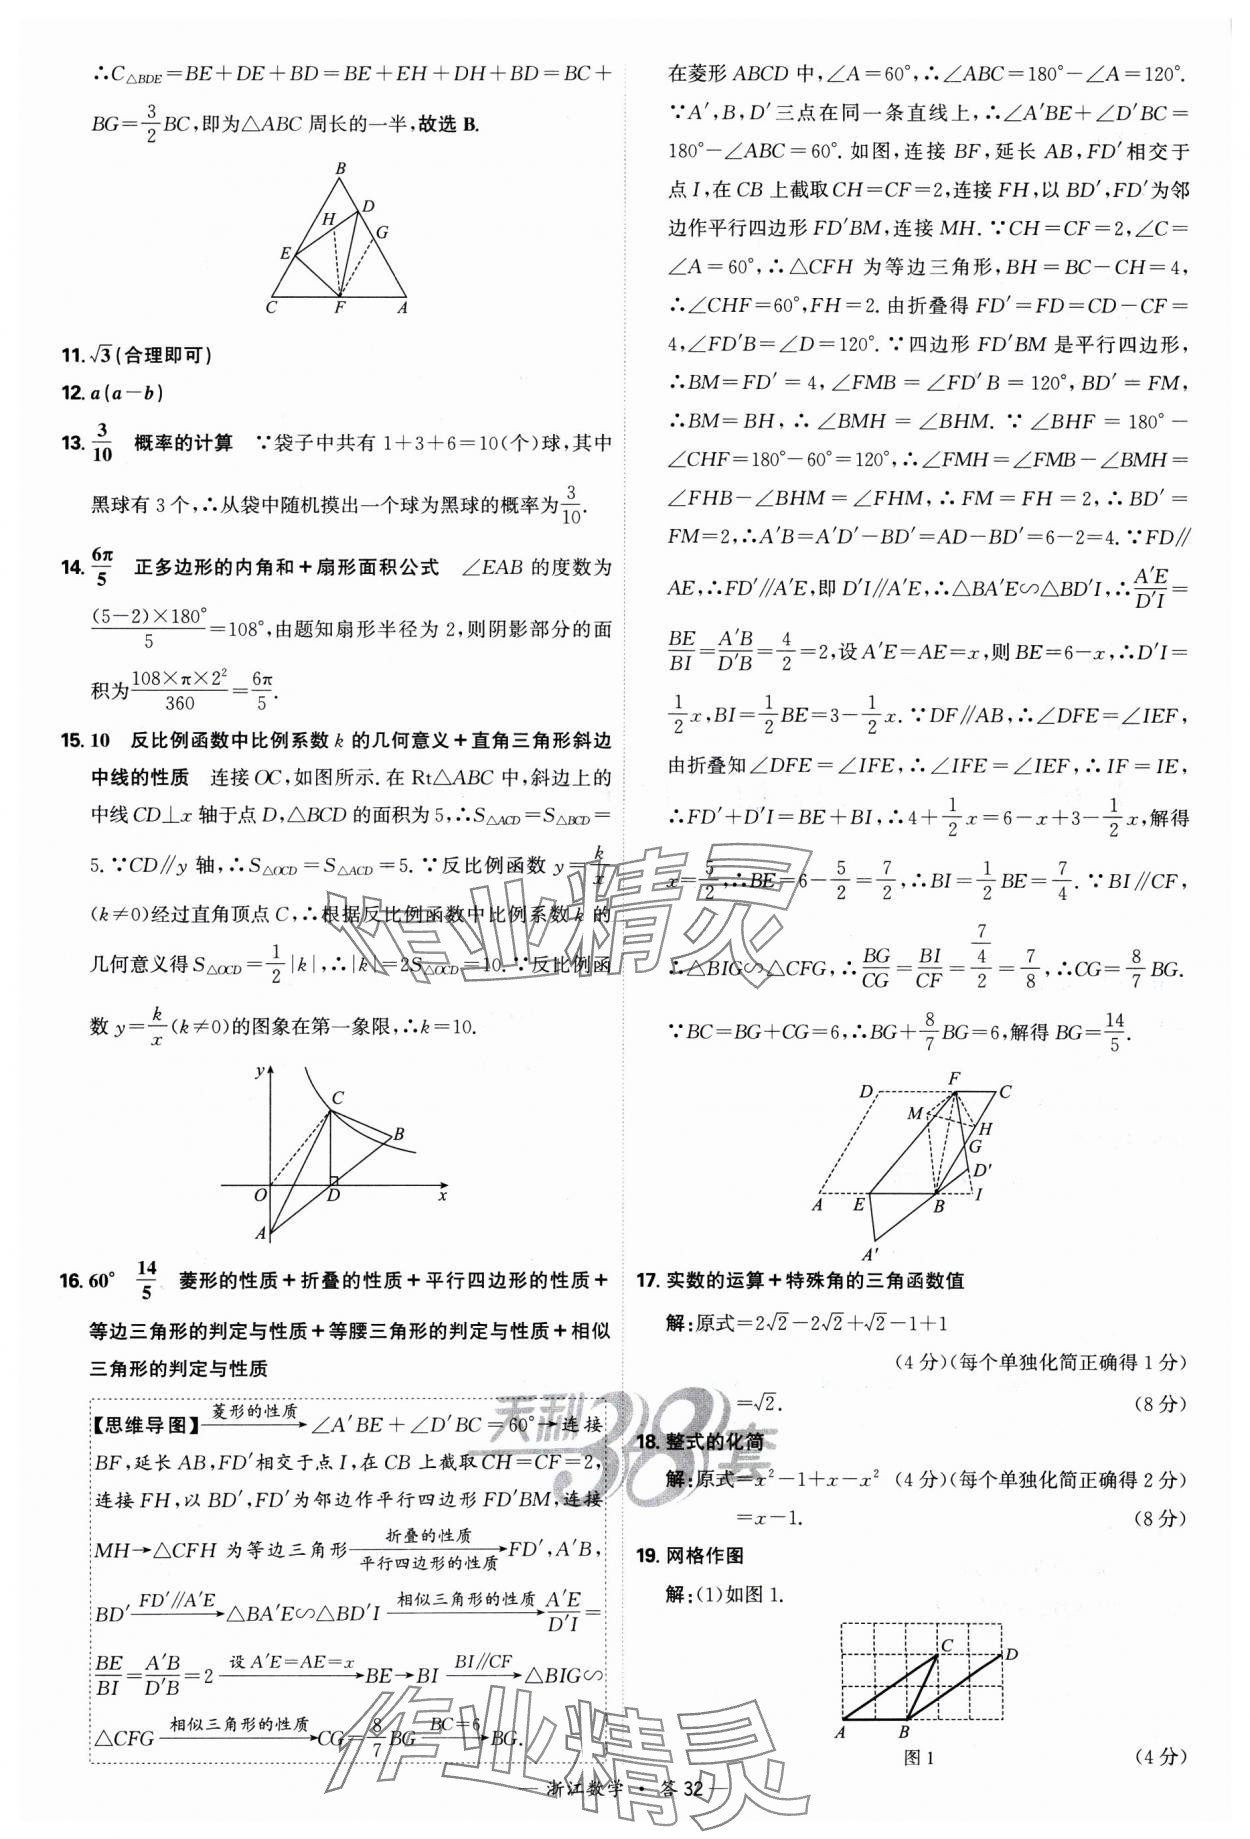 ∴C△BDE=BE+DE+BD=BE+EH+DH+BD=BC+
BG=3/2BC,即为△ABC 周长的一半,故选 B.
B
D
H
G
E
C
F
A
11. √3(合理即可)
12. a(a-b)
13. 3/10 概率的计算 ∵袋子中共有 1+3+6=10(个)球,其中
黑球有 3 个,∴从袋中随机摸出一个球为黑球的概率为3/10.
14. 6π/5 正多边形的内角和+扇形面积公式 ∠EAB 的度数为
(5-2)×180°/5=108°,由题知扇形半径为 2,则阴影部分的面
积为108×π×2²/360=6π/5.
15. 10 反比例函数中比例系数 k 的几何意义+直角三角形斜边
中线的性质 连接 OC,如图所示.在 Rt△ABC 中,斜边上的
中线 CD⊥x 轴于点 D,△BCD 的面积为 5,∴S△ACD=S△BCD=
5.∵CD∥y 轴,∴S△OCD=S△ACD=5.∵反比例函数 y=k/x
(k≠0)经过直角顶点 C,∴根据反比例函数中比例系数 k 的
几何意义得 S△OCD=1/2|k|,∴|k|=2S△OCD=10.∵反比例函
数 y=k/x(k≠0)的图象在第一象限,∴k=10.
y
C
B
O
D
x
A
16. 60° 14/5 菱形的性质+折叠的性质+平行四边形的性质+
等边三角形的判定与性质+等腰三角形的判定与性质+相似
三角形的判定与性质
【思维导图】菱形的性质→∠A′BE+∠D′BC=60°→连接
BF,延长 AB,FD′相交于点 I,在 CB 上截取 CH=CF=2,
连接 FH,以 BD′,FD′为邻边作平行四边形 FD′BM,连接
MH→△CFH 为等边三角形 折叠的性质 平行四边形的性质→FD′,A′B,
BD′ FD′∥A′E→△BA′E∽△BD′I 相似三角形的性质→A′E/D′I=
BE/BI=A′B/D′B=2 设 A′E=AE=x→BE→BI BI∥CF→△BIG∽
△CFG 相似三角形的性质→CG=8/7BG BC=6→BG.
在菱形 ABCD 中,∠A=60°,∴∠ABC=180°-∠A=120°.
∵A′,B,D′三点在同一条直线上,∴∠A′BE+∠D′BC=
180°-∠ABC=60°.如图,连接 BF,延长 AB,FD′相交于
点 I,在 CB 上截取 CH=CF=2,连接 FH,以 BD′,FD′为邻
边作平行四边形 FD′BM,连接 MH.∵CH=CF=2,∠C=
∠A=60°,∴△CFH 为等边三角形,BH=BC-CH=4,
∴∠CHF=60°,FH=2.由折叠得 FD′=FD=CD-CF=
4,∠FD′B=∠D=120°.∵四边形 FD′BM 是平行四边形,
∴BM=FD′=4,∠FMB=∠FD′B=120°,BD′=FM,
∴BM=BH,∴∠BMH=∠BHM.∵∠BHF=180°-
∠CHF=180°-60°=120°,∴∠FMH=∠FMB-∠BMH=
∠FHB-∠BHM=∠FHM,∴FM=FH=2,∴BD′=
FM=2,∴A′B=A′D′-BD′=AD-BD′=6-2=4.∵FD∥
AE,∴FD′∥A′E,即 D′I∥A′E,∴△BA′E∽△BD′I,∴A′E/D′I=
BE/BI=A′B/D′B=4/2=2,设 A′E=AE=x,则 BE=6-x,∴D′I=
1/2x,BI=1/2BE=3-1/2x.∵DF∥AB,∴∠DFE=∠IEF,
由折叠知∠DFE=∠IFE,∴∠IFE=∠IEF,∴IF=IE,
∴FD′+D′I=BE+BI,∴4+1/2x=6-x+3-1/2x,解得
x=5/2,∴BE=6-5/2=7/2,∴BI=1/2BE=7/4.∵BI∥CF,
∴△BIG∽△CFG,∴BG/CG=BI/CF=7/4/2=7/8,∴CG=8/7BG.
∵BC=BG+CG=6,∴BG+8/7BG=6,解得 BG=14/5.
D
F
C
M
H
G
D′
A
E
B
I
A′
17. 实数的运算+特殊角的三角函数值
解:原式=2√2-2√2+√2-1+1
(4 分)(每个单独化简正确得 1 分)
=√2. (8 分)
18. 整式的化简
解:原式=x²-1+x-x² (4 分)(每个单独化简正确得 2 分)
=x-1. (8 分)
19. 网格作图
解:(1)如图 1.
C
D
A
B
图 1 (4 分)
浙江数学·答 32
作业精灵
天利38套
作业精灵